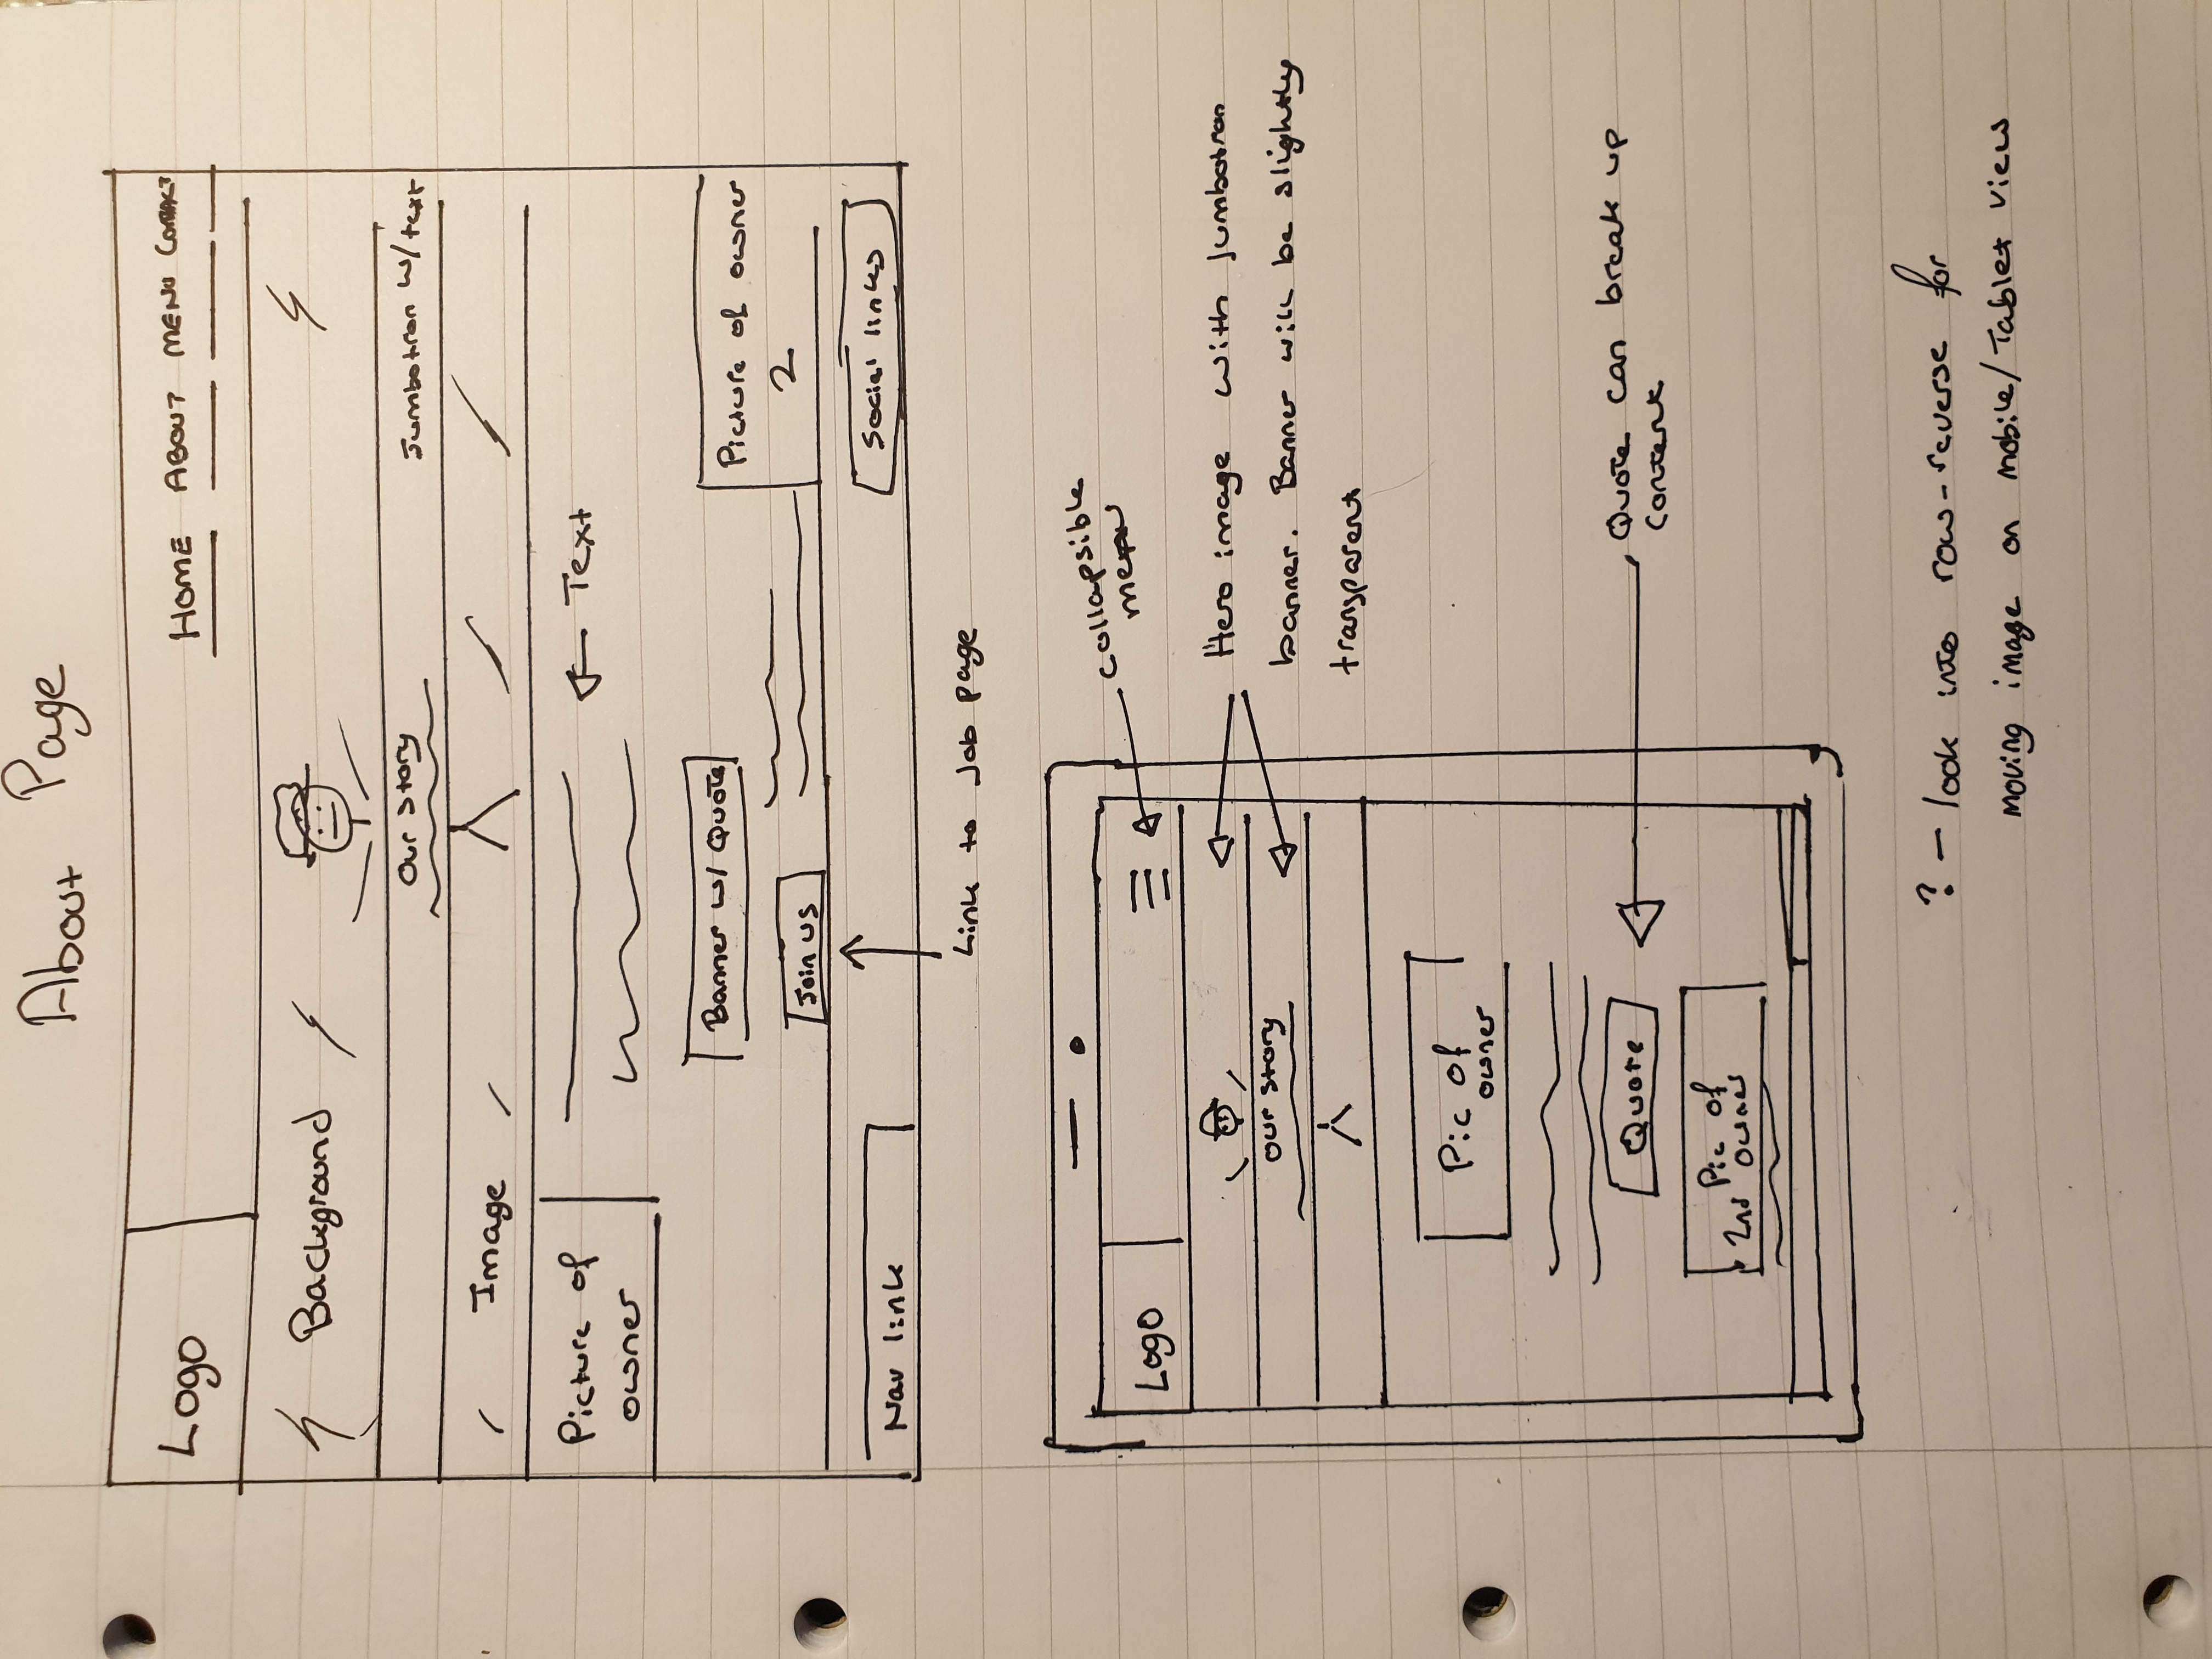 About Page
Logo
HOME ABOUT MENU CONTACT
Background
Our Story
Jumbotron w/text
Image
Picture of
owner
Text
Banner w/ Quote
Picture of owner
2
Join us
Nav link
Social links
Link to Job page
Logo
collapsible
menu
our story
Hero image with Jumbotron
banner. Banner will be slightly
transparent
Pic of
owner
Quote
Quote can break up
content
Pic of
2nd owner
? - look into row-reverse for
moving image on mobile/Tablet view